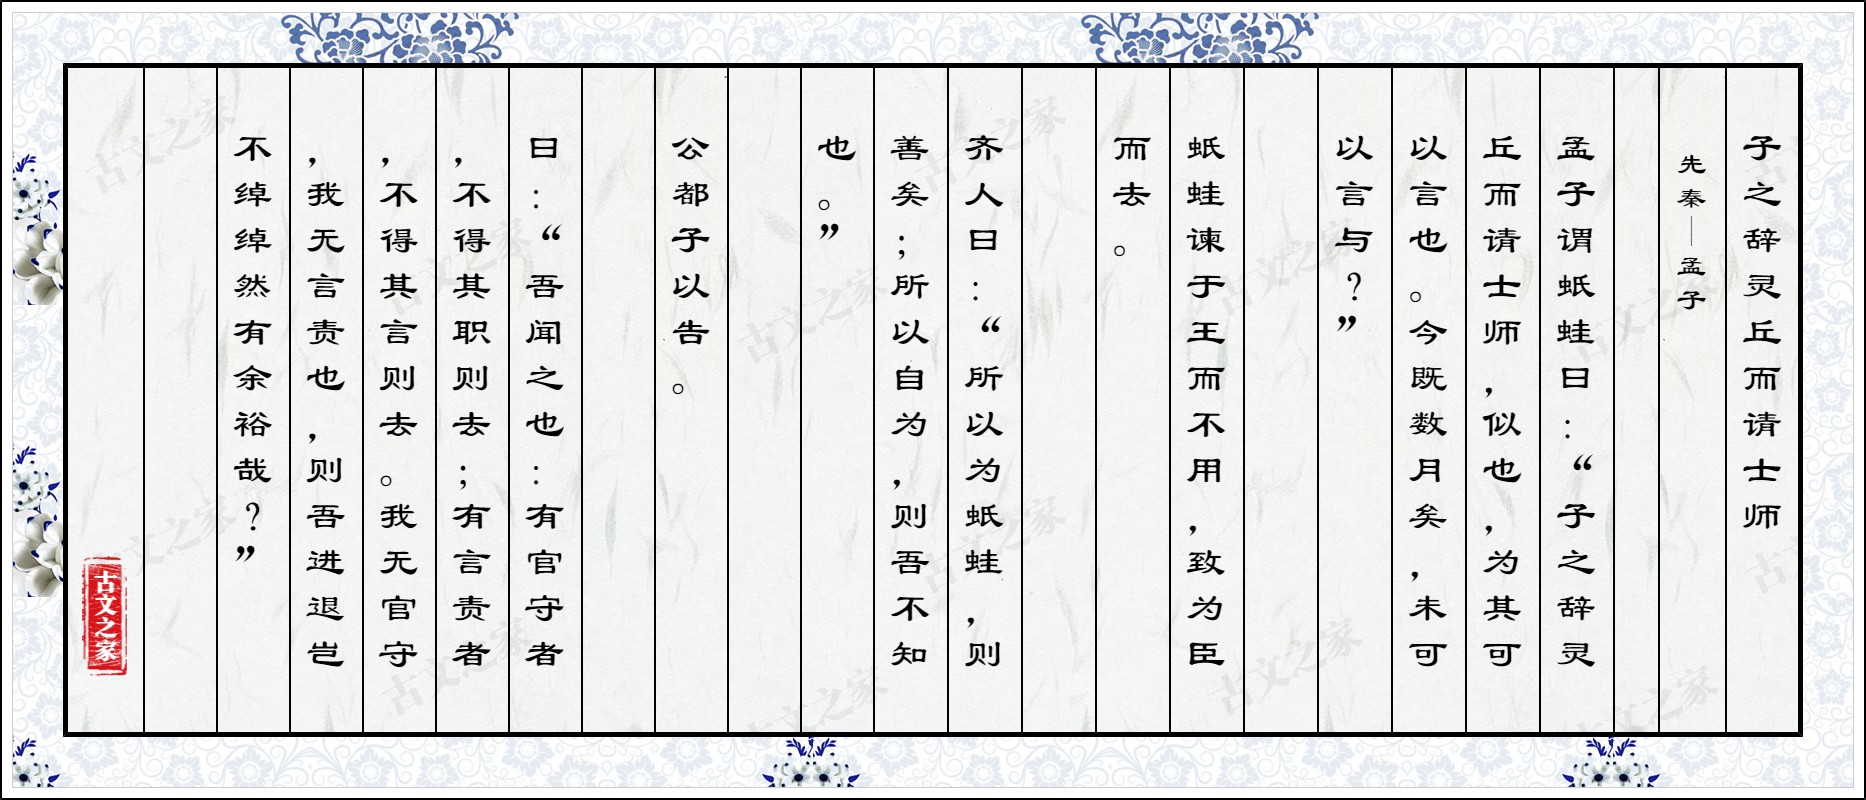 子之辞灵丘而请士师
先秦—孟子
孟子谓蚔蛙曰：“子之辞灵
丘而请士师，似也，为其可
以言也。今既数月矣，未可
以言与？”
蚔蛙谏于王而不用，致为臣
而去。
齐人曰：“所以为蚔蛙，则
善矣；所以自为，则吾不知
也。”
公都子以告。
曰：“吾闻之也：有官守者
，不得其职则去；有言责者
，不得其言则去。我无官守
，我无言责也，则吾进退岂
不绰绰然有余裕哉？”
古文之家